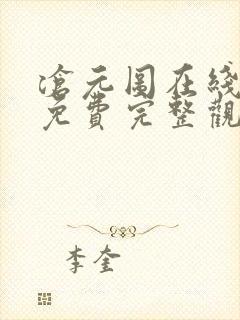 滄元图在綫
免費完整觀
李奎